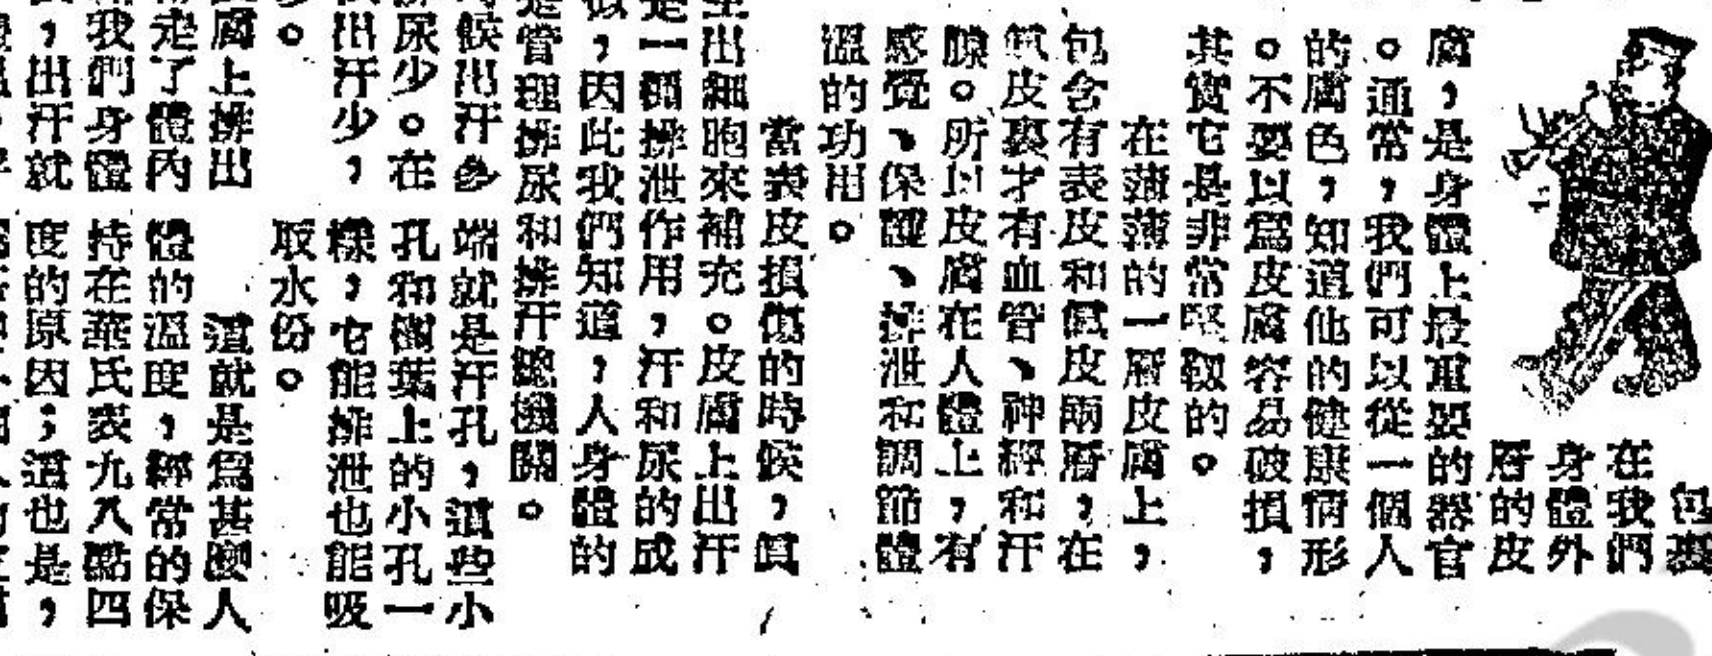 包裹
在我們
身體外
層的皮
膚,是身體上最重要的器官
。通常,我們可以從一個人
的膚色,知道他的健康情形
。不要以爲皮膚容易破損,
其實它是非常堅韌的。
在薄薄的一層皮膚上,
包含有表皮和眞皮兩層,在
眞皮裏才有血管、神經和汗
腺。所以皮膚在人體上,有
感覺、保護、排泄和調節體
溫的功用。
當表皮損傷的時候,眞
出細胞來補充。皮膚上出汗
是一種排泄作用,汗和尿的成
似,因此我們知道,人身體的
是管理排尿和排汗總機關。
候出汗多
尿少。在
出汗少,
膚上排出
走了體內
我們身體
,出汗就
端就是汗孔,這些小
孔和樹葉上的小孔一
樣,它能排泄也能吸
取水份。
這就是爲甚麼人
體的溫度,經常的保
持在華氏表九八點四
度的原因;這也是,